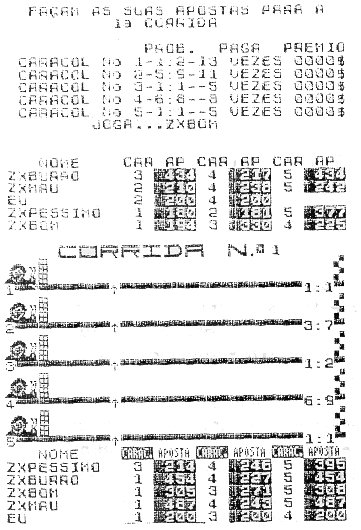 FAÇAM AS SUAS APOSTAS PARA A
1a CORRIDA
PROB. PAGA PREMIO
CARACOL No 1-1:2-13 VEZES 0000$
CARACOL No 2-5:9-11 VEZES 0000$
CARACOL No 3-1:1--5 VEZES 0000$
CARACOL No 4-6:8--8 VEZES 0000$
CARACOL No 5-1:1--5 VEZES 0000$
JOGA...ZXBOM
NOME CAR AP CAR AP CAR AP
ZXBURRO 3 434 4 217 5 434
ZXMAU 2 210 4 238 5
EU 2 200 4 200
ZXPESSIMO 1 180 2 181 5 377
ZXBOM 1 194 3 330 4 225
CORRIDA N.01
1 1:1
2 3:7
3 1:2
4 6:9
5 1:1
NOME CARAC. APOSTA CARAC. APOSTA CARAC. APOSTA
ZXPESSIMO 3 214 4 246 5 395
ZXBURRO 1 454 4 227 5 454
ZXBOM 1 205 3 5
ZXMAU 1 487 4 243 5 487
EU 2 200 4 200